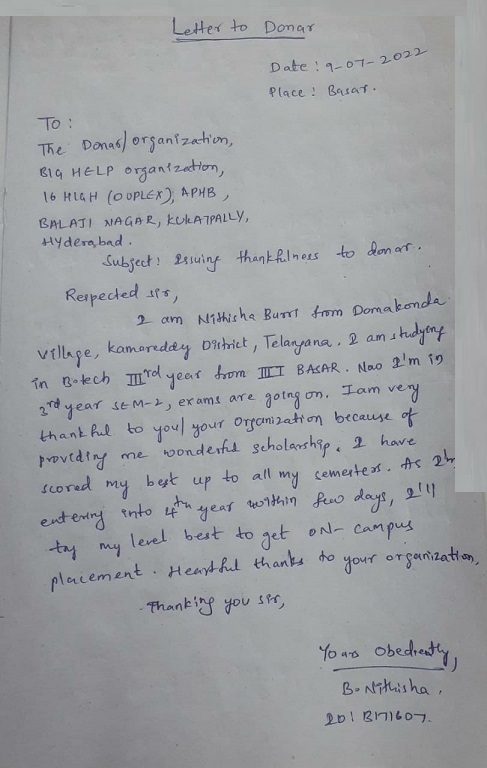 Letter to Donar
Date: 9-07-2022
Place: Basar.
To:
The Donar/organization,
BIG HELP organization,
16 HIGH (DOPLEX), APHB,
BALAJI NAGAR, KUKATPALLY,
Hyderabad.
Subject: Issuing thankfulness to donar.
Respected sir,
I am Nithisha Burri from Domakonda
village, kamareddy District, Telangana. I am studying
in B.tech IIIrd year from IIIT BASAR. Now I'm in
3rd year SEM-2, exams are going on. I am very
thankful to you/ your organization because of
providing me wonderful scholarship. I have
scored my best up to all my semesters. As I'm
entering into 4th year within few days, I'll
try my level best to get ON-campus
placement. Heartful thanks to your organization,
Thanking you sir,
Yours obediently,
B. Nithisha,
ID: B171607.